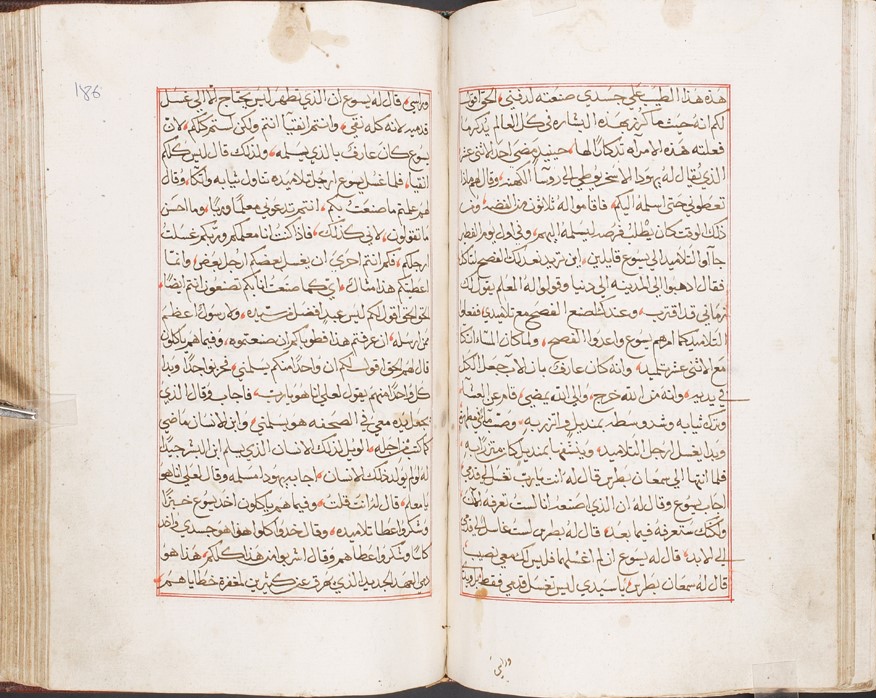 هذه هذا الطيب على جسدي صنعته لدفني الحق اقول
لكم انه حيث ما كرز بهذه البشاره في كل العالم يذكر ما
فعلته هذه الامراه تذكارًا لها حينيذ مضى احد الاثني عشر
الذي يقال له يهودا الاسخريوطي الى روسآ الكهنه وقال لهم ماذا
تعطوني حتى اسلمه اليكم فاقاموا له ثلاثون من الفضه ومن
ذلك الوقت كان يطلب فرصه ليسلمه اليهم وفي اول يوم الفطير
جآوا التلاميد الى يسوع قايلين اين تريد نعد لك الفصح لتاكل
فقال اذهبوا الى المدينه الى وقولوا له المعلم يقول لك
زماني قد اقترب وعندك اصنع الفصح مع تلاميدي ففعلوا
التلاميد كما امرهم يسوع واعدوا الفصح ولما كان المسا اتكا
مع الاثني عشر تلميد وانه كان عارف بان الاب جعل الكل
في يديه وانه من الله خرج والى الله يمضي قام عن العشآ
وترك ثيابه وشد وسطه بمنديل واتزر به وصب مآ في مطهره
وبدا يغسل ارجل التلاميد وينشفها بمنديل كان متزرًا به
فلما انتها الى سمعان بطرس قال له انت يارب تغسل لي قدمي
اجاب يسوع وقال له ان الذي اصنعه انا لست تعرفه الان
ولكنك ستعرفه فيما بعد قال له بطرس لست غاسل لي قدمي
الى الابد قال له يسوع ان لم اغسلهما فليس لك معي نصيب
قال له سمعان بطرس يا سيدي ليس تغسل قدمي فقط بل ويدي
وراسي
186
وراسي قال له يسوع ان الذي تطهر ليس يحتاج الا الى غسل
قدميه لانه كله نقي وانتم انقيا انتم ولكن لستم كلكم لان
يسوع كان عارف بالذي يسلمه ولذلك قال ليس كلكم
انقيا فلما غسل يسوع ارجل تلاميده تناول ثيابه واتكا وقال
لهم علمتم ما صنعت بكم انتم تدعوني معلمًا وربًا وما احسن
ما تقولون لاني كذلك فاذا كنت انا معلمكم وربكم غسلت
ارجلكم فكم انتم احرى ان يغسل بعضكم ارجل بعض وانما
اعطيتكم هذا مثال اي كما صنعت انا بكم تصنعون انتم ايضًا
الحق الحق اقول لكم ليس عبد افضل من سيده ولا رسول اعظم
من ارسله ان عرفتم هذا فطوباكم ان صنعتموه وفيما هم ياكلون
قال لهم الحق اقول لكم ان واحدًا منكم يسلمني فحزنوا جدًا وبدا
كل واحدًا منهم يقول لعلي انا هو يارب فاجاب وقال الذي
يجعل يده معي في الصحفه هو يسلمني وابن الانسان ماضي
كما كتب من اجله الويل لذلك الانسان الذي يسلم ابن البشر جيدًا
له لو لم يولد ذلك الانسان اجاب يهودا مسلمه وقال لعلي انا هو
يا معلم قال له انت قلت وفيما هم ياكلون اخد يسوع خبزًا
وشكر واعطا تلاميده وقال خدوا كلوا هذا هو جسدي واخد
كاسًا وشكر واعطاهم وقال اشربوا من هذا كلكم هذا هو
دمي العهد الجديد الذي يهرق عن كثيرين لمغفرة خطاياهم